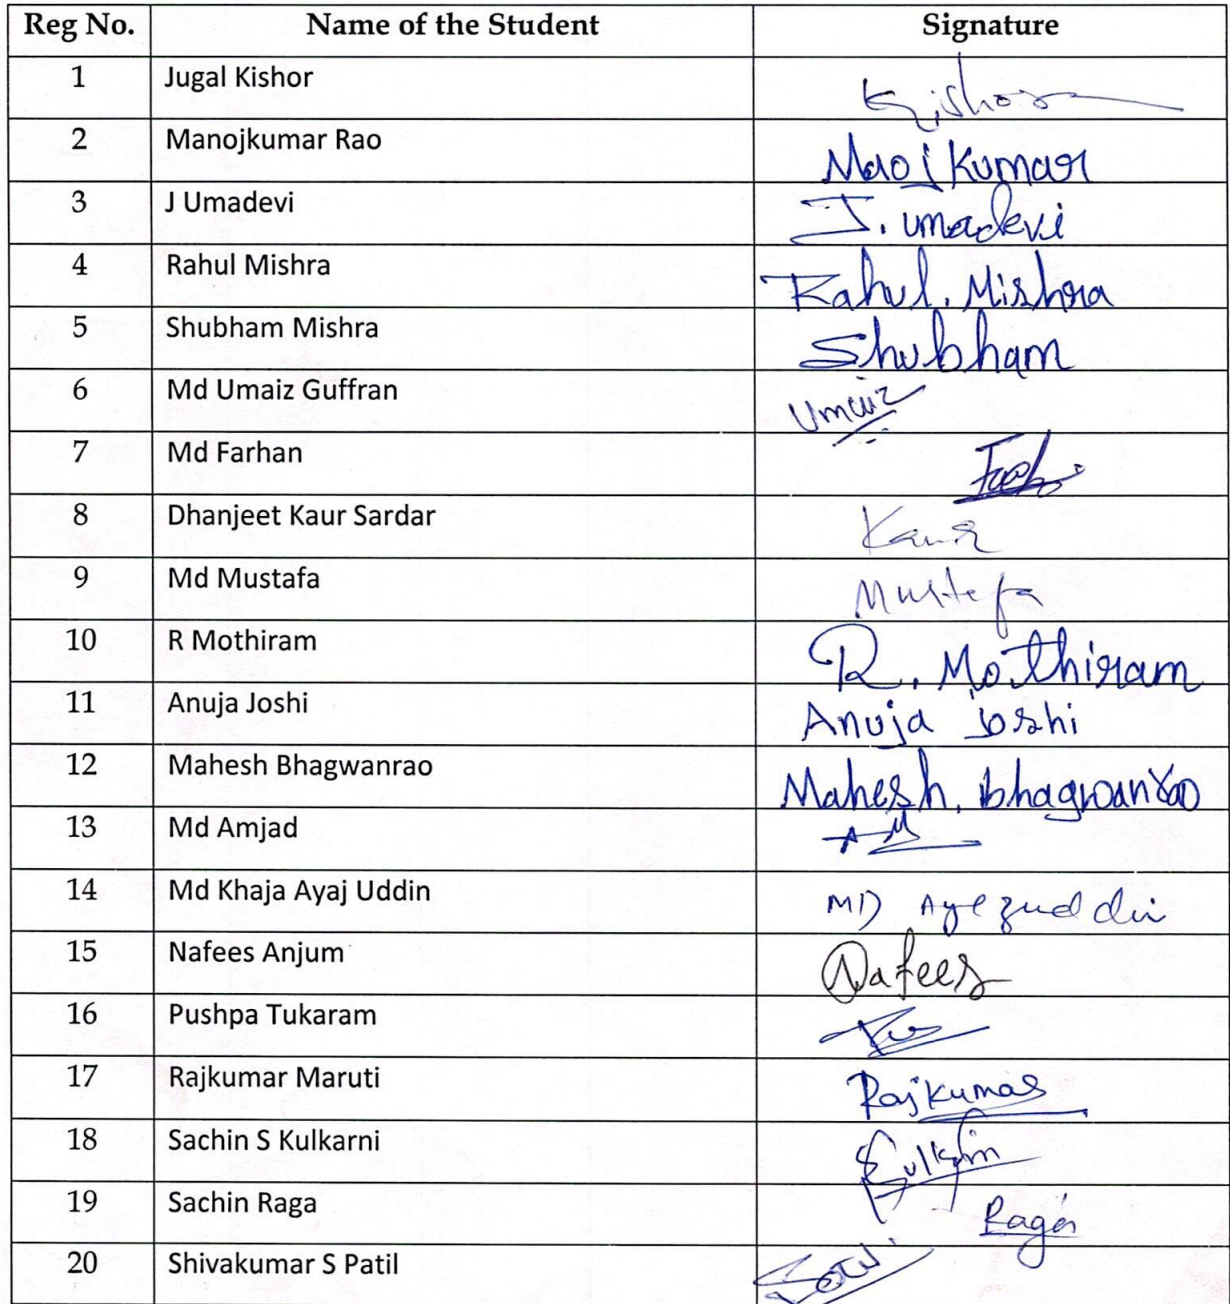 Reg No. Name of the Student Signature
1 Jugal Kishor Kishor
2 Manojkumar Rao Maoj Kumar
3 J Umadevi J. umadevi
4 Rahul Mishra Rahul. Mishra
5 Shubham Mishra Shubham
6 Md Umaiz Guffran Umaiz
7 Md Farhan
8 Dhanjeet Kaur Sardar Kaur
9 Md Mustafa Mustafa
10 R Mothiram R. Mothiram
11 Anuja Joshi Anuja Joshi
12 Mahesh Bhagwanrao Mahesh. bhagwanrao
13 Md Amjad
14 Md Khaja Ayaj Uddin MD Ayezuddin
15 Nafees Anjum Nafees
16 Pushpa Tukaram
17 Rajkumar Maruti Rajkumar
18 Sachin S Kulkarni
19 Sachin Raga Raga
20 Shivakumar S Patil